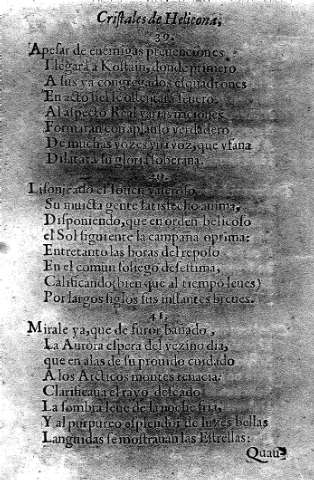 Cristales de Helicona,
39.
Apesar de enemigas preuenciones
Llegará a donde primero
A sus ya congregados esquadrones
En acto
Al aspecto Real
Formaran con aplauso verdadero
De muchas vozes vna voz, que vfana
Dilatara su gloria soberana.
40.
Lisonjeado el jouen valeroso,
Su inuicta gente satisfecho anima,
Disponiendo, que en orden belicoso
el Sol siguiente la campaña oprima:
Entretanto las horas del reposo
En el comun sosiego desestima,
Calificando (bien que al tiempo leues)
Por largos siglos sus instantes breues.
41.
Mirale ya, que de furor bañado,
La Aurora espera del vezino dia,
que en alas de su prouido cuidado
A los montes
el rayo
La sombra leue de la noche fria,
Y al purpureo esplendor de luzes bellas
Languidas se mostrauan las Estrellas: